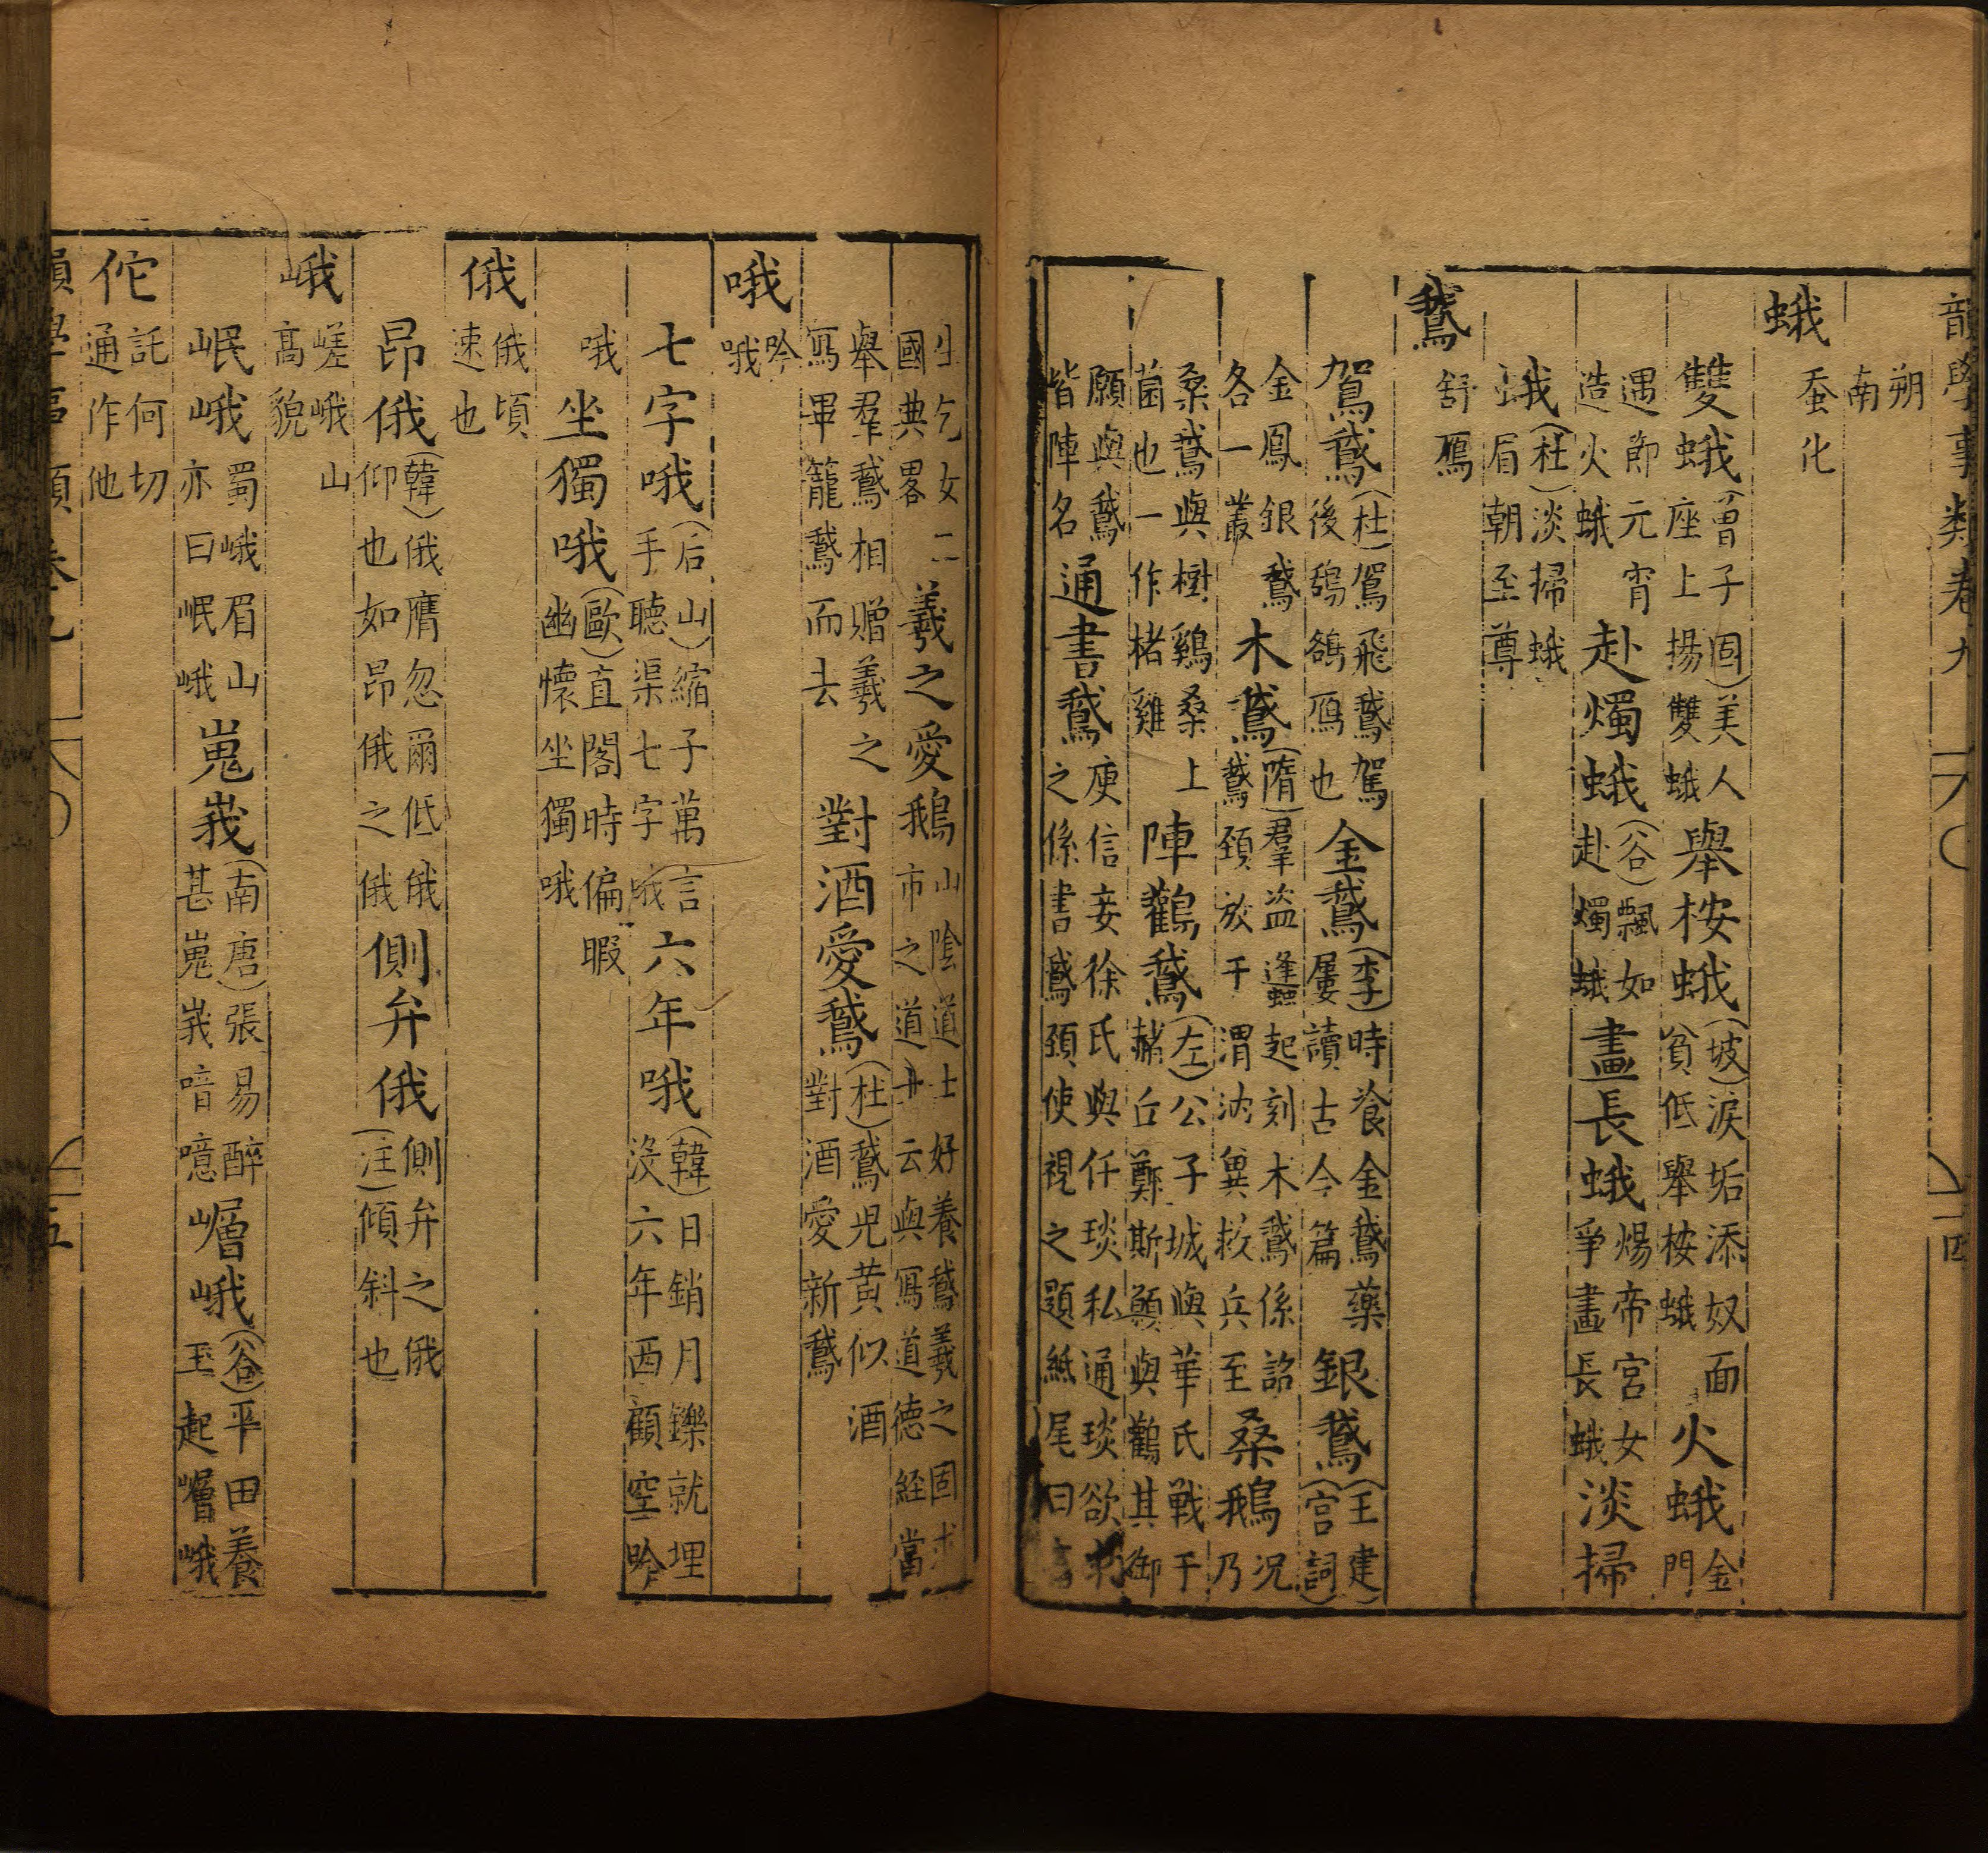 韻學事類卷九 十四
朔南
蛾 蚕化
雙蛾(曾子固)美人座上揚雙蛾 舉桉蛾(坡)淚垢添奴面貧低舉桉蛾 火蛾金門
遇節元宵造火蛾 赴燭蛾(谷)飄如赴燭蛾 畫長蛾煬帝宮女爭畫長蛾 淡掃
蛾(杜)淡掃蛾眉朝至尊
鵞 舒鴈
鴐鵞(杜)鴐飛鵞鴐後鴰鶬鴈也 金鵞(李)時飡金鵞藥屢讀古今篇 銀鵞(王建宮詞)
金鳳銀鵞各一叢 木鵞(隋)羣盗蓬起刻木鵞係詔鵞頚放于渭沕兾救兵至 桑鵝况乃
桑鵞與樹鷄桑上菌也一作楮雞 陣鸛鵞(左)公子城與華氏戰于赭丘鄭斯願與鸛其御
願與鵞皆陣名 通書鵞庾信妾徐氏與任琰私通琰欲之係書鵞頚使視之題紙尾曰
生乞女二國典畧 羲之愛鵝山陰道士好養鵞羲之固求市之道士云與寫道德経當
舉羣鵞相贈羲之寫畢籠鵞而去 對酒愛鵞(杜)鵞児黄似酒對酒愛新鵞
哦 吟哦
七字哦(后山)縮子萬言手聽渠七字哦 六年哦(韓)日銷月鑠就埋沒六年西顧空吟
哦 坐獨哦(歐)直閣時偏暇幽懷坐獨哦
俄 俄頃速也
昂俄(韓)俄膺忽爾低俄仰也如昂俄之俄 側弁俄側弁之俄(注)傾斜也
峨 嵯峨山高貌
岷峨蜀峨眉山亦曰岷峨 嵬峩(南唐)張易醉甚嵬峩喑噫 嶒峨(谷)平田養玉起嶒峨
佗 託何切通作他
韻學事類卷九 十五